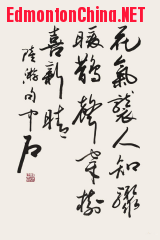 EdmontonChina.NET
花氣襲人知驟
暖鵲聲穿樹
喜新晴
陸游句中石